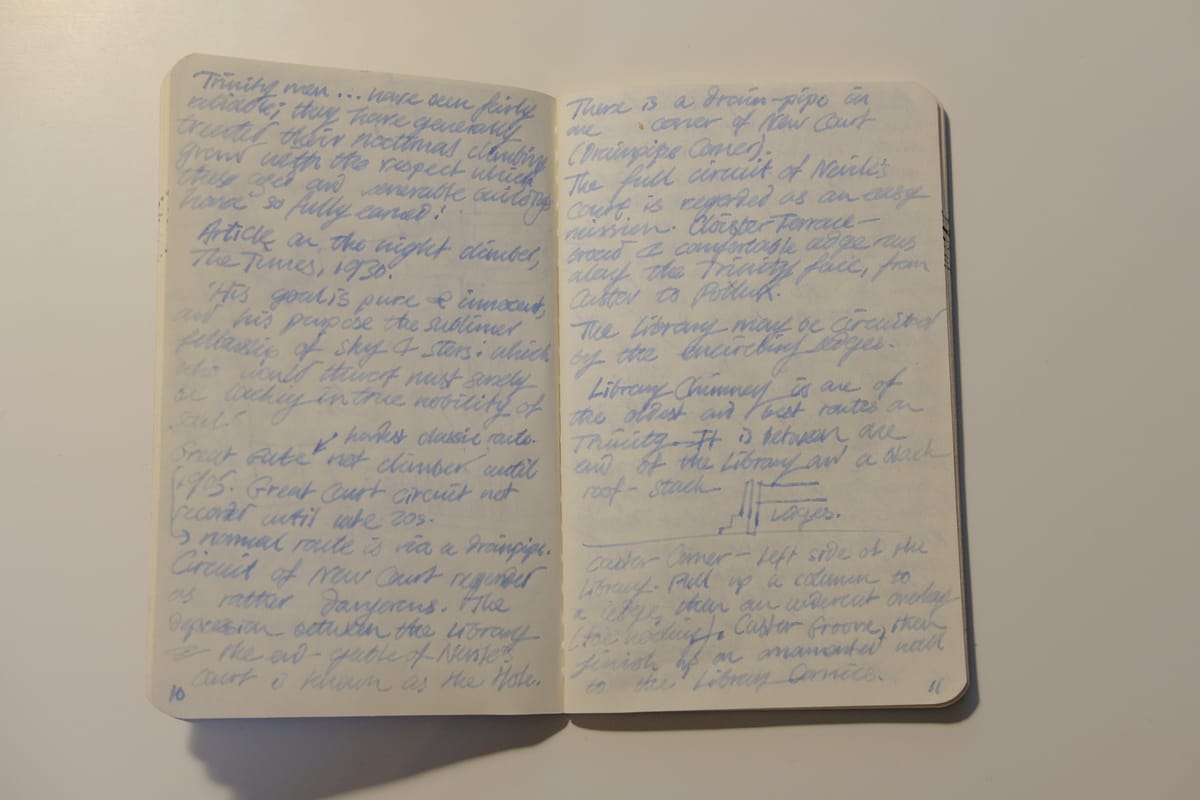 Trinity men ... have been fairly
reliable; they have generally
treated their nocturnal climbing
ground with the respect which
these aged and venerable buildings
have so fully earned!
Article on the night climber,
The Times, 1930.
'His goal is pure & innocent,
and his purpose the sublimer
fellowship of sky & stars: which
who would thwart must surely
be lacking in true nobility of
soul.'
hardest classic route.
Great Gate not climbed until
1905. Great Court circuit not
recorded until late 20s.
→ normal route is via a drainpipe.
Circuit of New Court regarded
as rather dangerous. The
depression between the Library
& the end-gable of Nevile's
Court is known as the Hole.
10
There is a drain-pipe in
one corner of New Court
(Drainpipe Corner).
The full circuit of Nevile's
Court is regarded as an easy
mission. Cloister Terrace –
broad & comfortable edge runs
along the Trinity face, from
Castor to Pollux.
The Library may be circuited
by the encircling edges.
Library Chimney is one of
the oldest and best routes on
Trinity. It is between one
end of the Library and a black
roof-stack.
Ledges.
Castor Corner – left side of the
Library. Pull up a column to
a ledge, then an undercut overlay
(foreboding). Castor Groove, then
finish up on ornamented wall
to the Library Cornice.
11